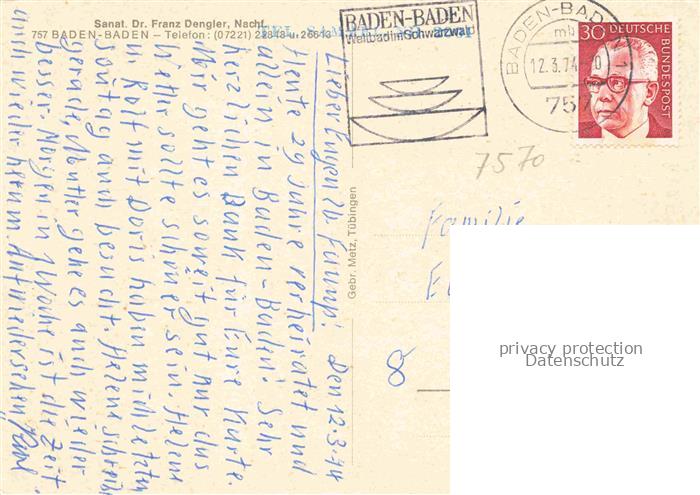 Sanat. Dr. Franz Dengler, Nachf.
757 BADEN-BADEN - Telefon: (07221) 22343 u. 26643
BADEN-BADEN
Weltbad im Schwarzwald
BADEN-BADEN 1
mb
12.3.74
757
30
DEUTSCHE
BUNDESPOST
7570
Familie
Gebr. Metz, Tübingen
Lieber Eugen u. Fam.! Den 12.3.74
Heute 29 Jahre verheiratet und
allein in Baden-Baden. Sehr
herzlichen Dank für Eure Karte.
Mir geht es soweit gut nur das
Wetter sollte schöner sein. Helene
u. Rolf mit Doris haben mich letzten
Sonntag auch besucht. Helene schreibt
gerade, Mutter gehe es auch wieder
besser. Morgen in 1 Woche ist die Zeit
auch wieder herum. Auf Wiedersehen
privacy protection
Datenschutz